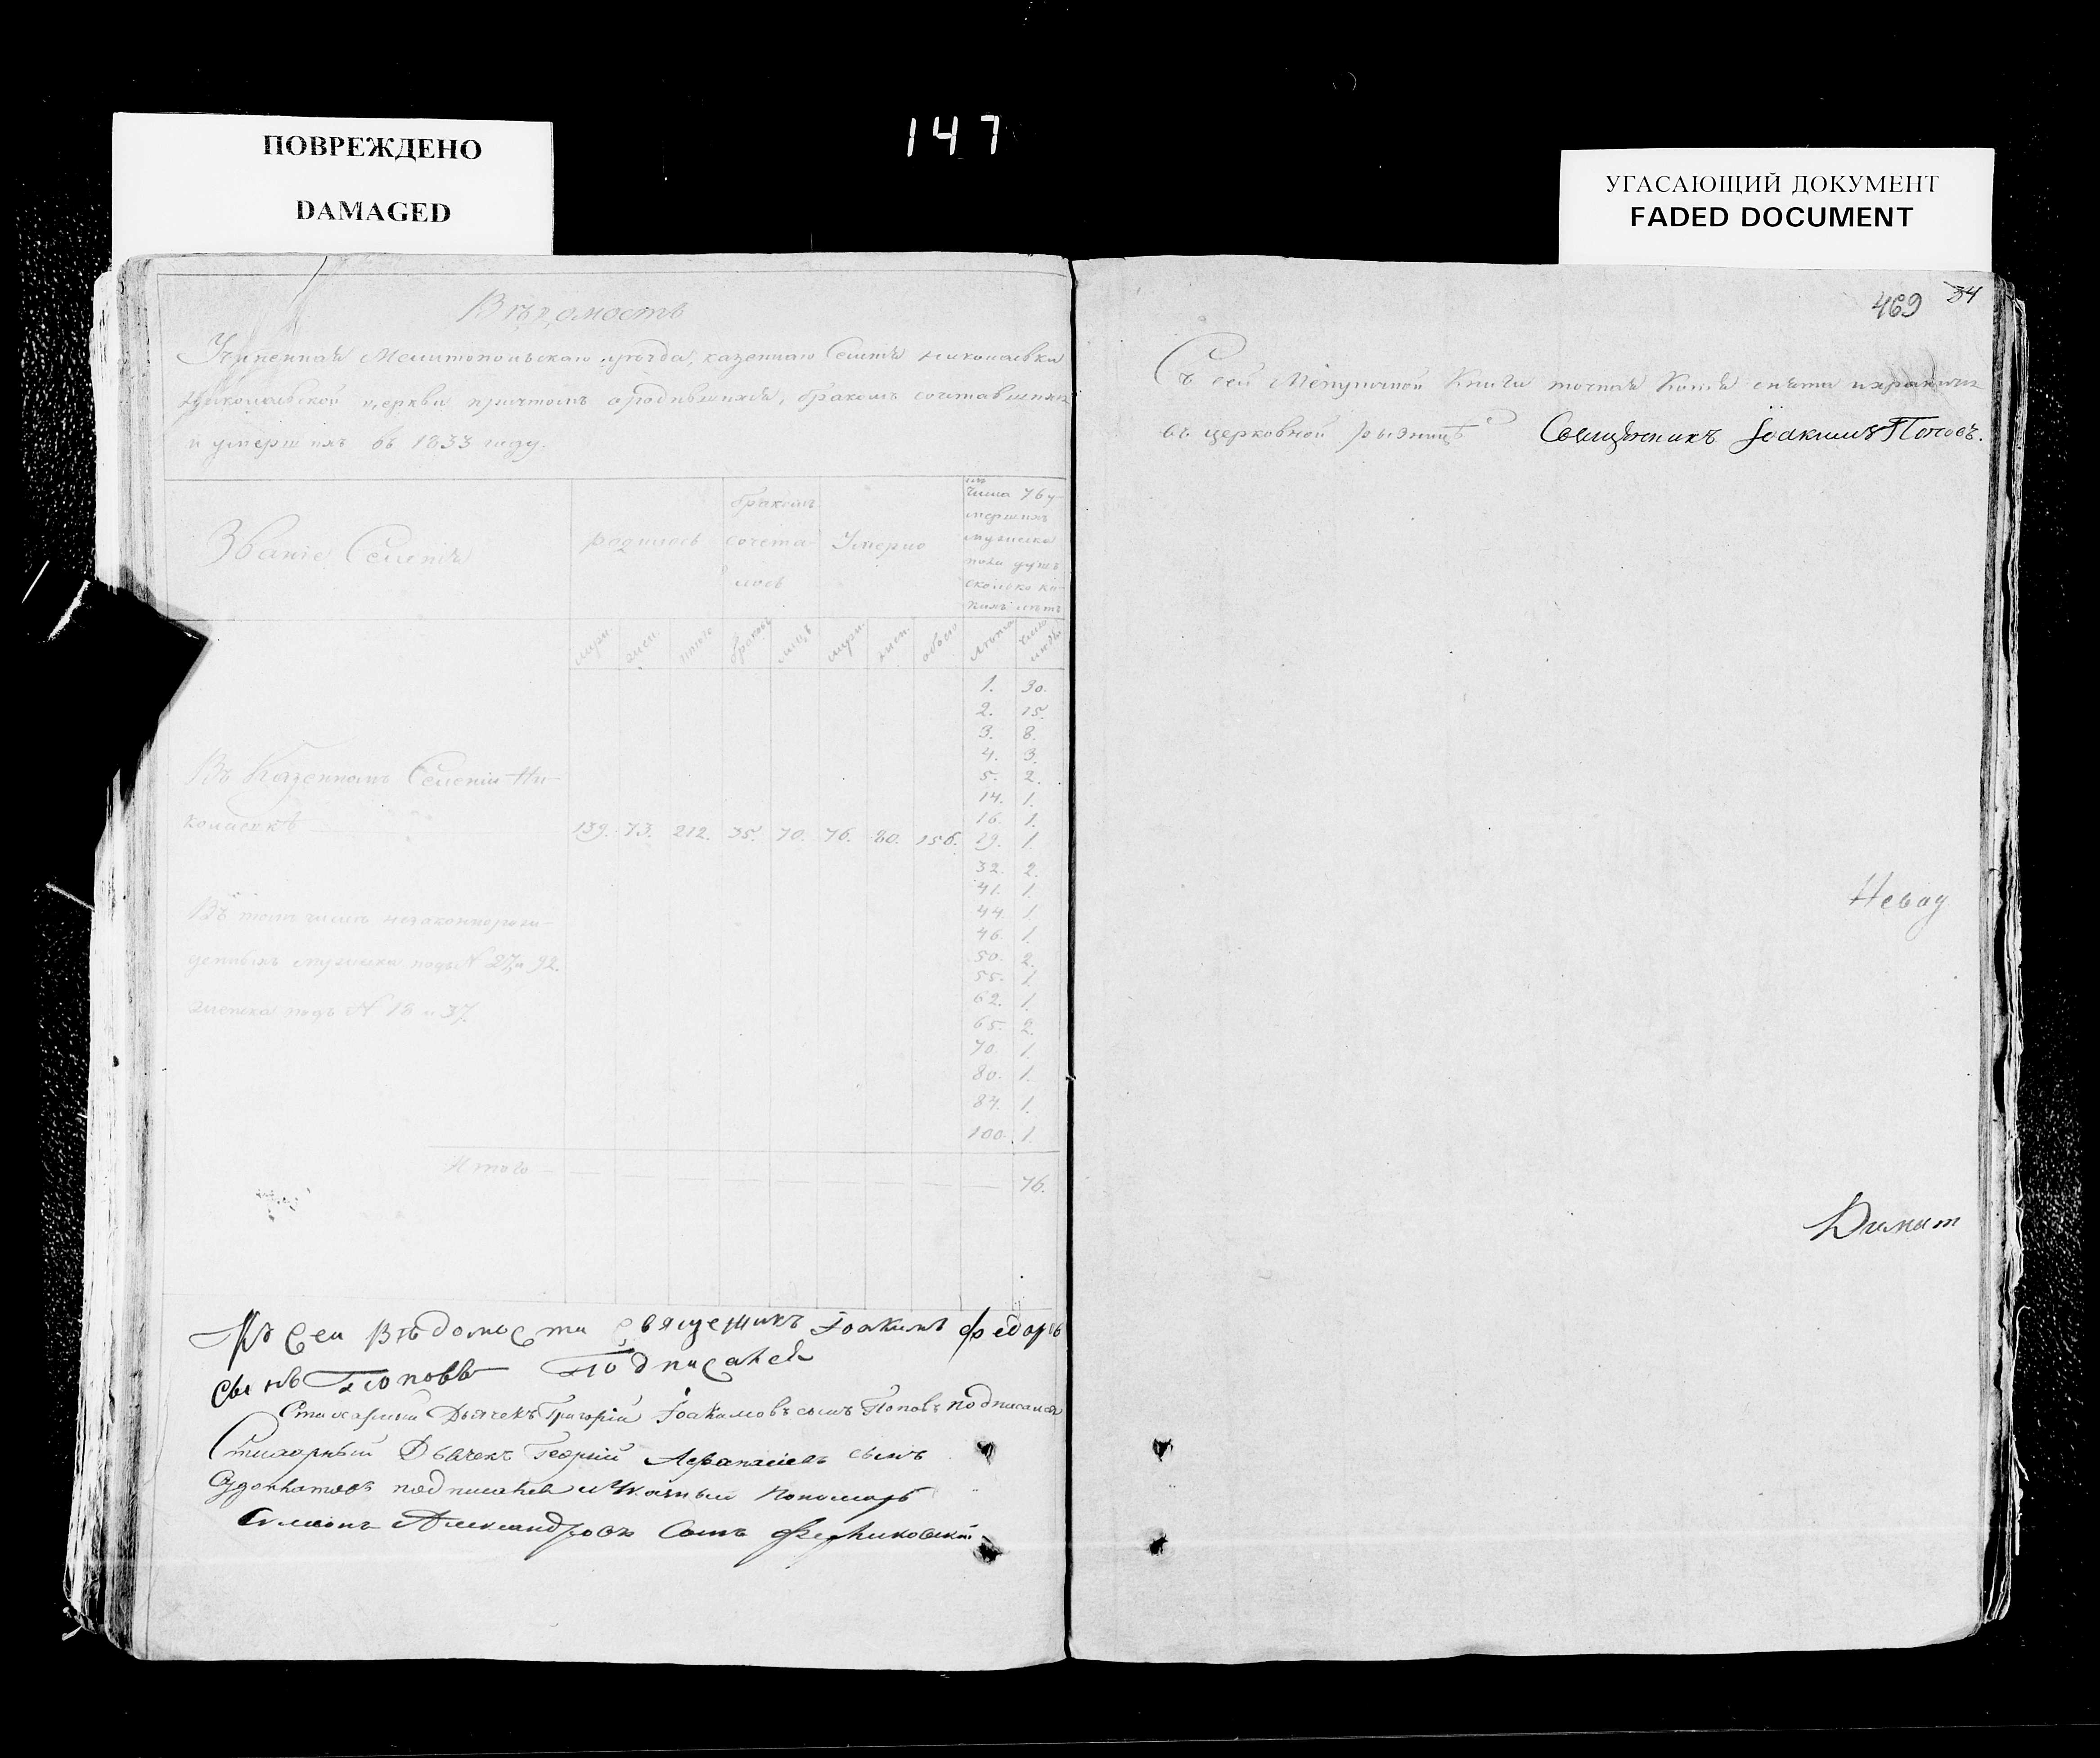 147
ПОВРЕЖДЕНО
DAMAGED
УГАСАЮЩИЙ ДОКУМЕНТ
FADED DOCUMENT
Вѣдомость
Учиненная Мелитопольскаго уѣзда, казеннаго Селенія Николаевки
Николаевской церкви причтомъ о родившихся, бракомъ сочетавшихся
и умершихъ въ 1833 году.
Званіе Селенія
родилось
бракомъ
сочета-
лось
Умерло
изъ
числа 76 у-
мершихъ
мужеска
пола душъ
сколько ка-
кихъ лѣтъ
муж. жен. того браковъ лицъ муж. жен. обоего лѣта число
1. 30.
2. 15.
3. 8.
4. 3.
5. 2.
14. 1.
16. 1.
Въ Казенномъ Селеніи Ни-
колаевкѣ 139. 73. 212. 35. 70. 76. 80. 156.
29. 1.
32. 2.
41. 1.
44. 1.
46. 1.
50. 2.
55. 1.
62. 1.
65. 2.
70. 1.
80. 1.
87. 1.
100. 1.
Въ томъ числѣ незаконнорож-
денныхъ мужеска подъ N 27 и 92.
женска подъ N 18 и 37.
Итого 76.
Къ сей Вѣдомости священникъ Іоакимъ Федоровъ
сынъ Поповъ Подписался
Стихарный Дьячекъ Григорій Іоакимовъ сынъ Поповъ подписался
Стихарный Дьячекъ Георгій Афанасіевъ сынъ
подписался и Указный Пономарь
Симеонъ Александровъ Сынъ
469 34
Съ сей Метрической Книги точная Копія снята и хранится
въ церковной ризницѣ Священникъ Іоакимъ Поповъ.